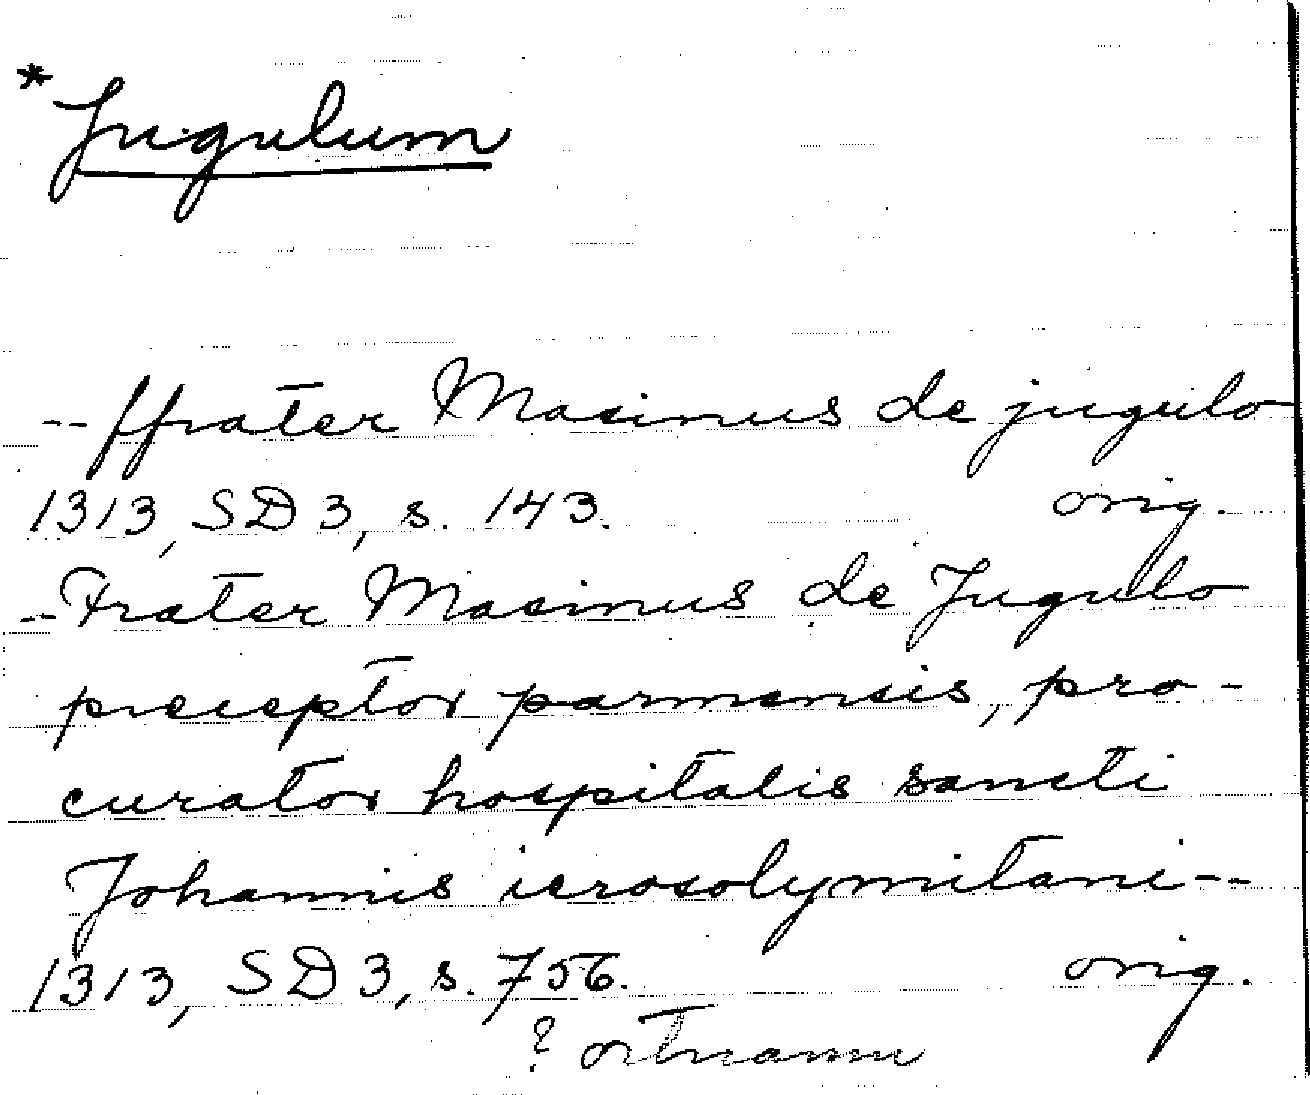 * Jugulum
-- ffrater Masinus de jugulo
1313, SD 3, s. 143. orig.
-- Frater Masinus de Jugulo
preceptor parmensis, pro-
curator hospitalis sancti
Johannis ierosolymitani --
1313, SD 3, s. 756. orig.
? ortnamn